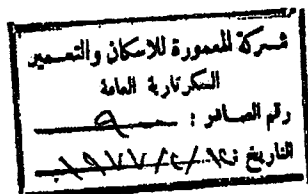 شركة المعمورة للاسكان والتعمير
السكرتارية العامة
رقم الصادر : ٩
التاريخ :